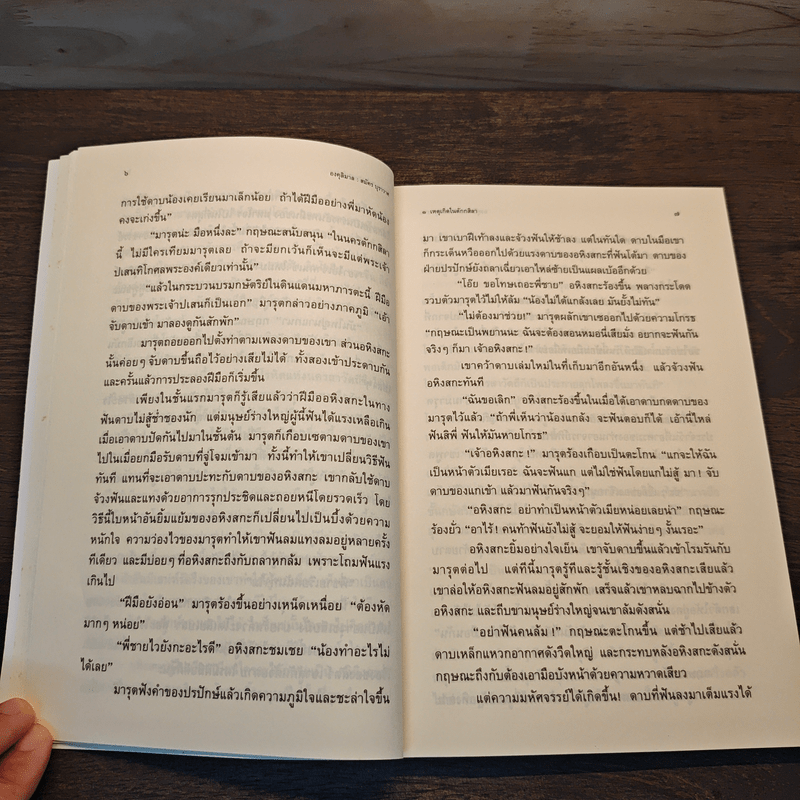 ๖
องคุลิมาล : สมัคร บุราวาศ
การใช้ดาบน้องเคยเรียนมาเล็กน้อย ถ้าได้ฝีมืออย่างพี่มาหัดน้อง
คงจะเก่งขึ้น”
“มารุตน่ะ มือหนึ่งละ” กฤษณะสนับสนุน “ในนครตักกสิลา
นี้ ไม่มีใครเทียมมารุตเลย ถ้าจะมียกเว้นก็เห็นจะมีแต่พระเจ้า
ปเสนทิโกศลพระองค์เดียวเท่านั้น”
“แล้วในกระบวนบรมกษัตริย์ในดินแดนมหาภารตะนี้ ฝีมือ
ดาบของพระเจ้าปเสนก็เป็นเอก” มารุตกล่าวอย่างภาคภูมิ “เอ้า
จับดาบเข้า มาลองดูกันสักพัก”
มารุตถอยออกไปตั้งท่าตามเพลงดาบของเขา ส่วนอหิงสกะ
นั้นค่อยๆ จับดาบขึ้นถือไว้อย่างเสียไม่ได้ ทั้งสองเข้าประดาบกัน
และครั้นแล้วการประลองฝีมือก็เริ่มขึ้น
เพียงในชั้นแรกมารุตก็รู้เสียแล้วว่าฝีมืออหิงสกะในทาง
ฟันดาบไม่สู้ช่ำชองนัก แต่มนุษย์ร่างใหญ่ผู้นี้ฟันได้แรงเหลือเกิน
เมื่อเอาดาบปัดกันไปมาในชั้นต้น มารุตก็เกือบเซตามดาบของเขา
ไปในเมื่อยกมือรับดาบที่จู่โจมเข้ามา ทั้งนี้ทำให้เขาเปลี่ยนวิธีฟัน
ทันที แทนที่จะเอาดาบปะทะกับดาบของอหิงสกะ เขากลับใช้ดาบ
จ้วงฟันและแทงด้วยอาการรุกประชิดและถอยหนีโดยรวดเร็ว โดย
วิธีนี้ใบหน้าอันยิ้มแย้มของอหิงสกะก็เปลี่ยนไปเป็นบึ้งด้วยความ
หนักใจ ความว่องไวของมารุตทำให้เขาฟันลมแทงลมอยู่หลายครั้ง
ทีเดียว และมีบ่อยๆ ที่อหิงสกะถึงกับถลาหกล้ม เพราะโถมฟันแรง
เกินไป
“ฝีมือยังอ่อน” มารุตร้องขึ้นอย่างเหน็ดเหนื่อย “ต้องหัด
มากๆ หน่อย”
“พี่ชายไวยังกะอะไรดี” อหิงสกะชมเชย “น้องทำอะไรไม่
ได้เลย”
มารุตฟังคำของปรปักษ์แล้วเกิดความภูมิใจและชะล่าใจขึ้น
๑ เหตุเกิดในตักกสิลา
๗
มา เขาเบาฝีเท้าลงและจ้วงฟันให้ช้าลง แต่ในทันใด ดาบในมือเขา
ก็กระเด็นหวือออกไปด้วยแรงดาบของอหิงสกะที่ฟันโต้มา ดาบของ
ฝ่ายปรปักษ์ยังถลาเฉี่ยวเอาไหล่ซ้ายเป็นแผลเบ้ออีกด้วย
“โอ๊ย ขอโทษเถอะพี่ชาย” อหิงสกะร้องขึ้น พลางกระโดด
รวบตัวมารุตไว้ไม่ให้ล้ม “น้องไม่ได้แกล้งเลย มันยั้งไม่ทัน”
“ไม่ต้องมาช่วย!” มารุตผลักเขาเซออกไปด้วยความโกรธ
“กฤษณะเป็นพยานนะ ฉันจะต้องสอนหมอนี่เสียมั่ง อยากจะฟันกัน
จริงๆ ก็มา เจ้าอหิงสกะ!”
เขาคว้าดาบเล่มใหม่ในที่เก็บมาอีกอันหนึ่ง แล้วจ้วงฟัน
อหิงสกะทันที
“ฉันขอเลิก” อหิงสกะร้องขึ้นในเมื่อได้เอาดาบกดดาบของ
มารุตไว้แล้ว “ถ้าพี่เห็นว่าน้องแกล้ง จะฟันตอบก็ได้ เอ้านี่ไหล่
ฟันสิพี่ ฟันให้มันหายโกรธ”
“เจ้าอหิงสกะ!” มารุตร้องเกือบเป็นตะโกน “แกจะให้ฉัน
เป็นหน้าตัวเมียเรอะ ฉันจะฟันแก แต่ไม่ใช่ฟันโดยแกไม่สู้ มา! จับ
ดาบของแกเข้า แล้วมาฟันกันจริงๆ”
“อหิงสกะ อย่าทำเป็นหน้าตัวเมียหน่อยเลยน่า” กฤษณะ
ร้องยั่ว “อาไร้! คนท้าฟันยังไม่สู้ จะยอมให้ฟันง่ายๆ งั้นเรอะ”
อหิงสกะยิ้มอย่างใจเย็น เขาจับดาบขึ้นแล้วเข้าโรมรันกับ
มารุตต่อไป แต่ทีนี้มารุตรู้ทีและรู้ชั้นเชิงของอหิงสกะเสียแล้ว
เขาล่อให้อหิงสกะฟันลมอยู่สักพัก เสร็จแล้วเขาหลบฉากไปข้างตัว
อหิงสกะ และถีบขามนุษย์ร่างใหญ่จนเขาล้มดังสนั่น
“อย่าฟันคนล้ม!” กฤษณะตะโกนขึ้น แต่ช้าไปเสียแล้ว
ดาบเหล็กแหวกอากาศดังวืดใหญ่ และกระทบหลังอหิงสกะดังสนั่น
กฤษณะถึงกับต้องเอามือบังหน้าด้วยความหวาดเสียว
แต่ความมหัศจรรย์ได้เกิดขึ้น! ดาบที่ฟันลงมาเต็มแรงได้